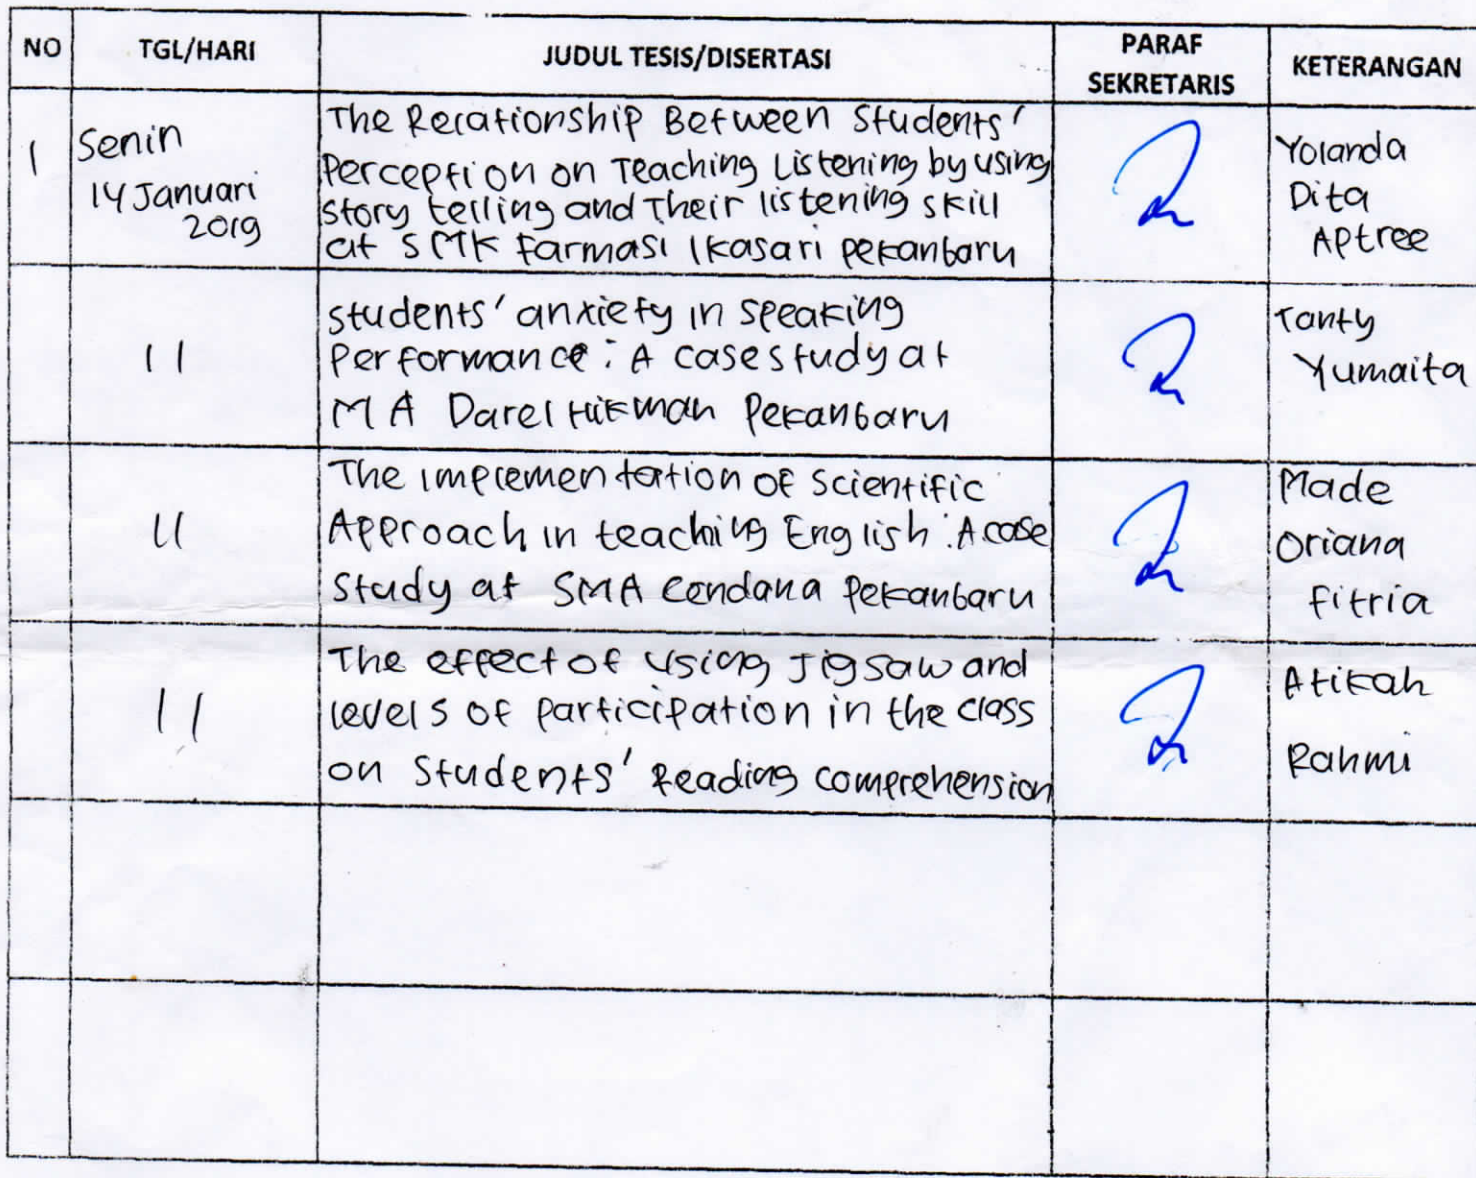 NO TGL/HARI JUDUL TESIS/DISERTASI PARAF SEKRETARIS KETERANGAN
1
Senin
14 Januari
2019
The Relationship Between Students'
Perception on Teaching Listening by using
story telling and Their listening skill
at SMK Farmasi Ikasari Pekanbaru
Yolanda
Dita
Aptree
11
students' anxiety in speaking
Performance : A case study at
MA Darel Hikmah Pekanbaru
Tanty
Yumaita
11
The implementation of Scientific
Approach in teaching English : A case
Study at SMA Cendana Pekanbaru
Made
Oriana
Fitria
11
The effect of using Jigsaw and
levels of participation in the class
on Students' Reading comprehension
Atikah
Rahmi